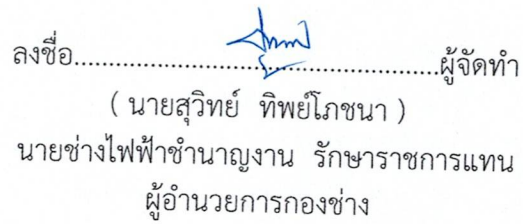 ลงชื่อ..........................................ผู้จัดทำ
( นายสุวิทย์ ทิพย์โภชนา )
นายช่างไฟฟ้าชำนาญงาน รักษาราชการแทน
ผู้อำนวยการกองช่าง